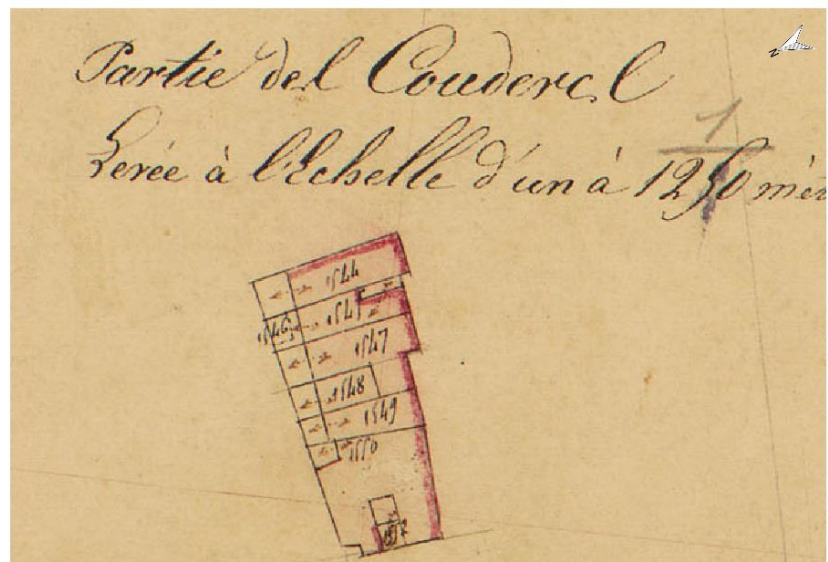 Partie del Couderc
Levée à l'Echelle d'un à 1250
1
1544
1545
1546
1547
1548
1549
1550